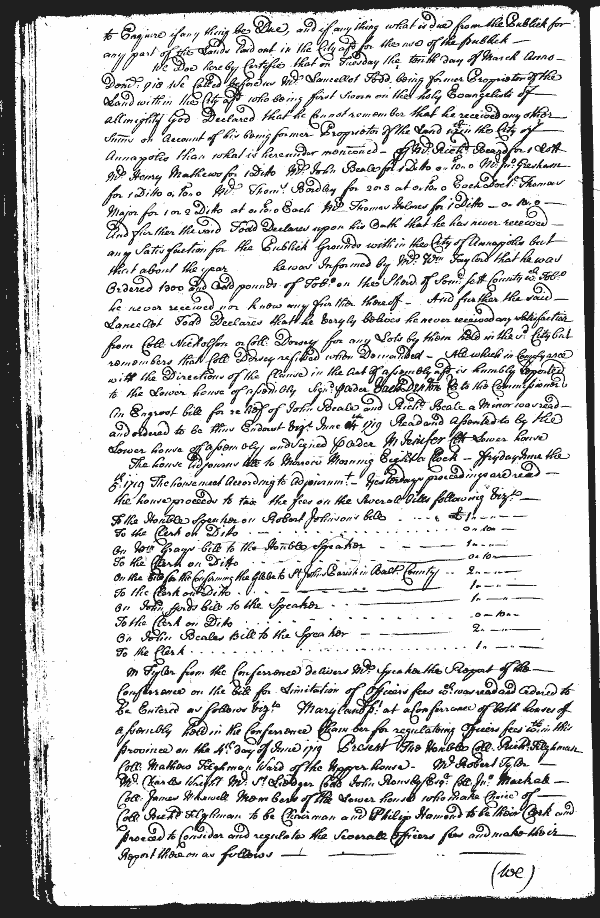 to Enquire if any thing be Due, and if any thing what is due from the Publick for
any part of the Lands laid out in the City afd for the use of the Publick —
We Doe hereby Certifie that on Tuesday the tenth day of March Anno
Dom. 1718 We Called before us Mr. Lancellot Todd, being former Proprietor of the
Land within the City afd who being first Sworn on the holy Evangelists of
allmighty God Declared that he cannot remember that he received any other
Summs on Account of his being former Proprietor of the Land in the City of
Annapolis than what is hereunder mentioned — of Mr. Richd. Beard for 1 Lott
Mr. Henry Mathews for 1 Ditto Mr. John Beale for 1 Ditto Mr. Jno. Gresham
for 1 Ditto Mr. Thoms. Bordley for 2 or 3 at Each Doctr. Thomas
Major for 1 or 2 Ditto at Each Mr. Thomas for 1 Ditto —
And further the said Todd Declares upon his Oath that he has never received
any Satisfaction for the Publick Grounds within the City of Annapolis but
that about the year he was Informed by Mr. Wm. Taylord that he was
Ordered 1300 and Odd pounds of Tobo. on the Sherd. of Somersett County Tobo.
he never received nor know any further thereof — And further the said
Lancellot Todd Declares that he veryly believes he never received any Satisfaction
from Coll Nicholson or Coll. Dorsey for any Lots by them held in the sd. City but
remembers that Coll Dorsey refused when Demanded — All which in Complyance
with the Directions of the Clause in the Act of assembly afd is humbly reported
to the Lower house of assembly Sign. p Order Clk to the Commissioners
An Engrost bill for relief of John Beale and Richd. Beale a Minor was read
and ordered to be thus Endorst Vizt June 4th 1719 Read and assented to by the
Lower house of assembly and signed p Order M Jenifer Clk Lower house
The house adjourns to Morrow Morning Eight a Clock — Fryday June the
5th. 1719 The house meet According to Adjournmt. — Yesterdays proceedings are read —
the house proceeds to tax the fees on the Severall bills following Vizt —
To the Honble Speaker on Robert Johnsons bill . . . . £1 — —
To the Clerk on Ditto . . . 0 — 10 —
On Wm. Grays bill to the Honble Speaker — 1 — —
To the Clerk on Ditto — 0 — 10 —
On the bill for the Confirming the Glebe to St. Johns Parish in Balt. County . . 2 — —
To the Clerk on Ditto . — 1 — —
On John fords bill to the Speaker . . . 1 — —
To the Clerk on Ditto . . . 0 — 10 —
On John Beales Bill to the Speaker — 2 — —
To the Clerk . . . 1 — —
Mr Tyler from the Conferrence delivers Mr. Speaker the Report of the
Conferrence on the bill for Limitation of Officers fees wch. was read and ordered to
be Entered as follows Vizt. Maryland ss: at a Conferrence of both houses of
assembly held in the Conferrence Chamber for regulating Officers fees within this
province on the 4th. day of June 1719 Present The Honble Coll. Richd. Tilghman
Coll. Mathew Tilghman Ward of the Upper house — Mr. Robert Tyler
Mr. Charles Wright Mr. St. Ledger Codd John Rousby Esqr. Coll. Jno. Mackall —
Coll James Maxwell Members of the Lower house who make Choice of —
Coll Richd Tilghman to be Chairman and Philip Hamond to be their Clerk and
proceed to Consider and regulate the Severall Officers fees and make their
Report thereon as follows —
(We)